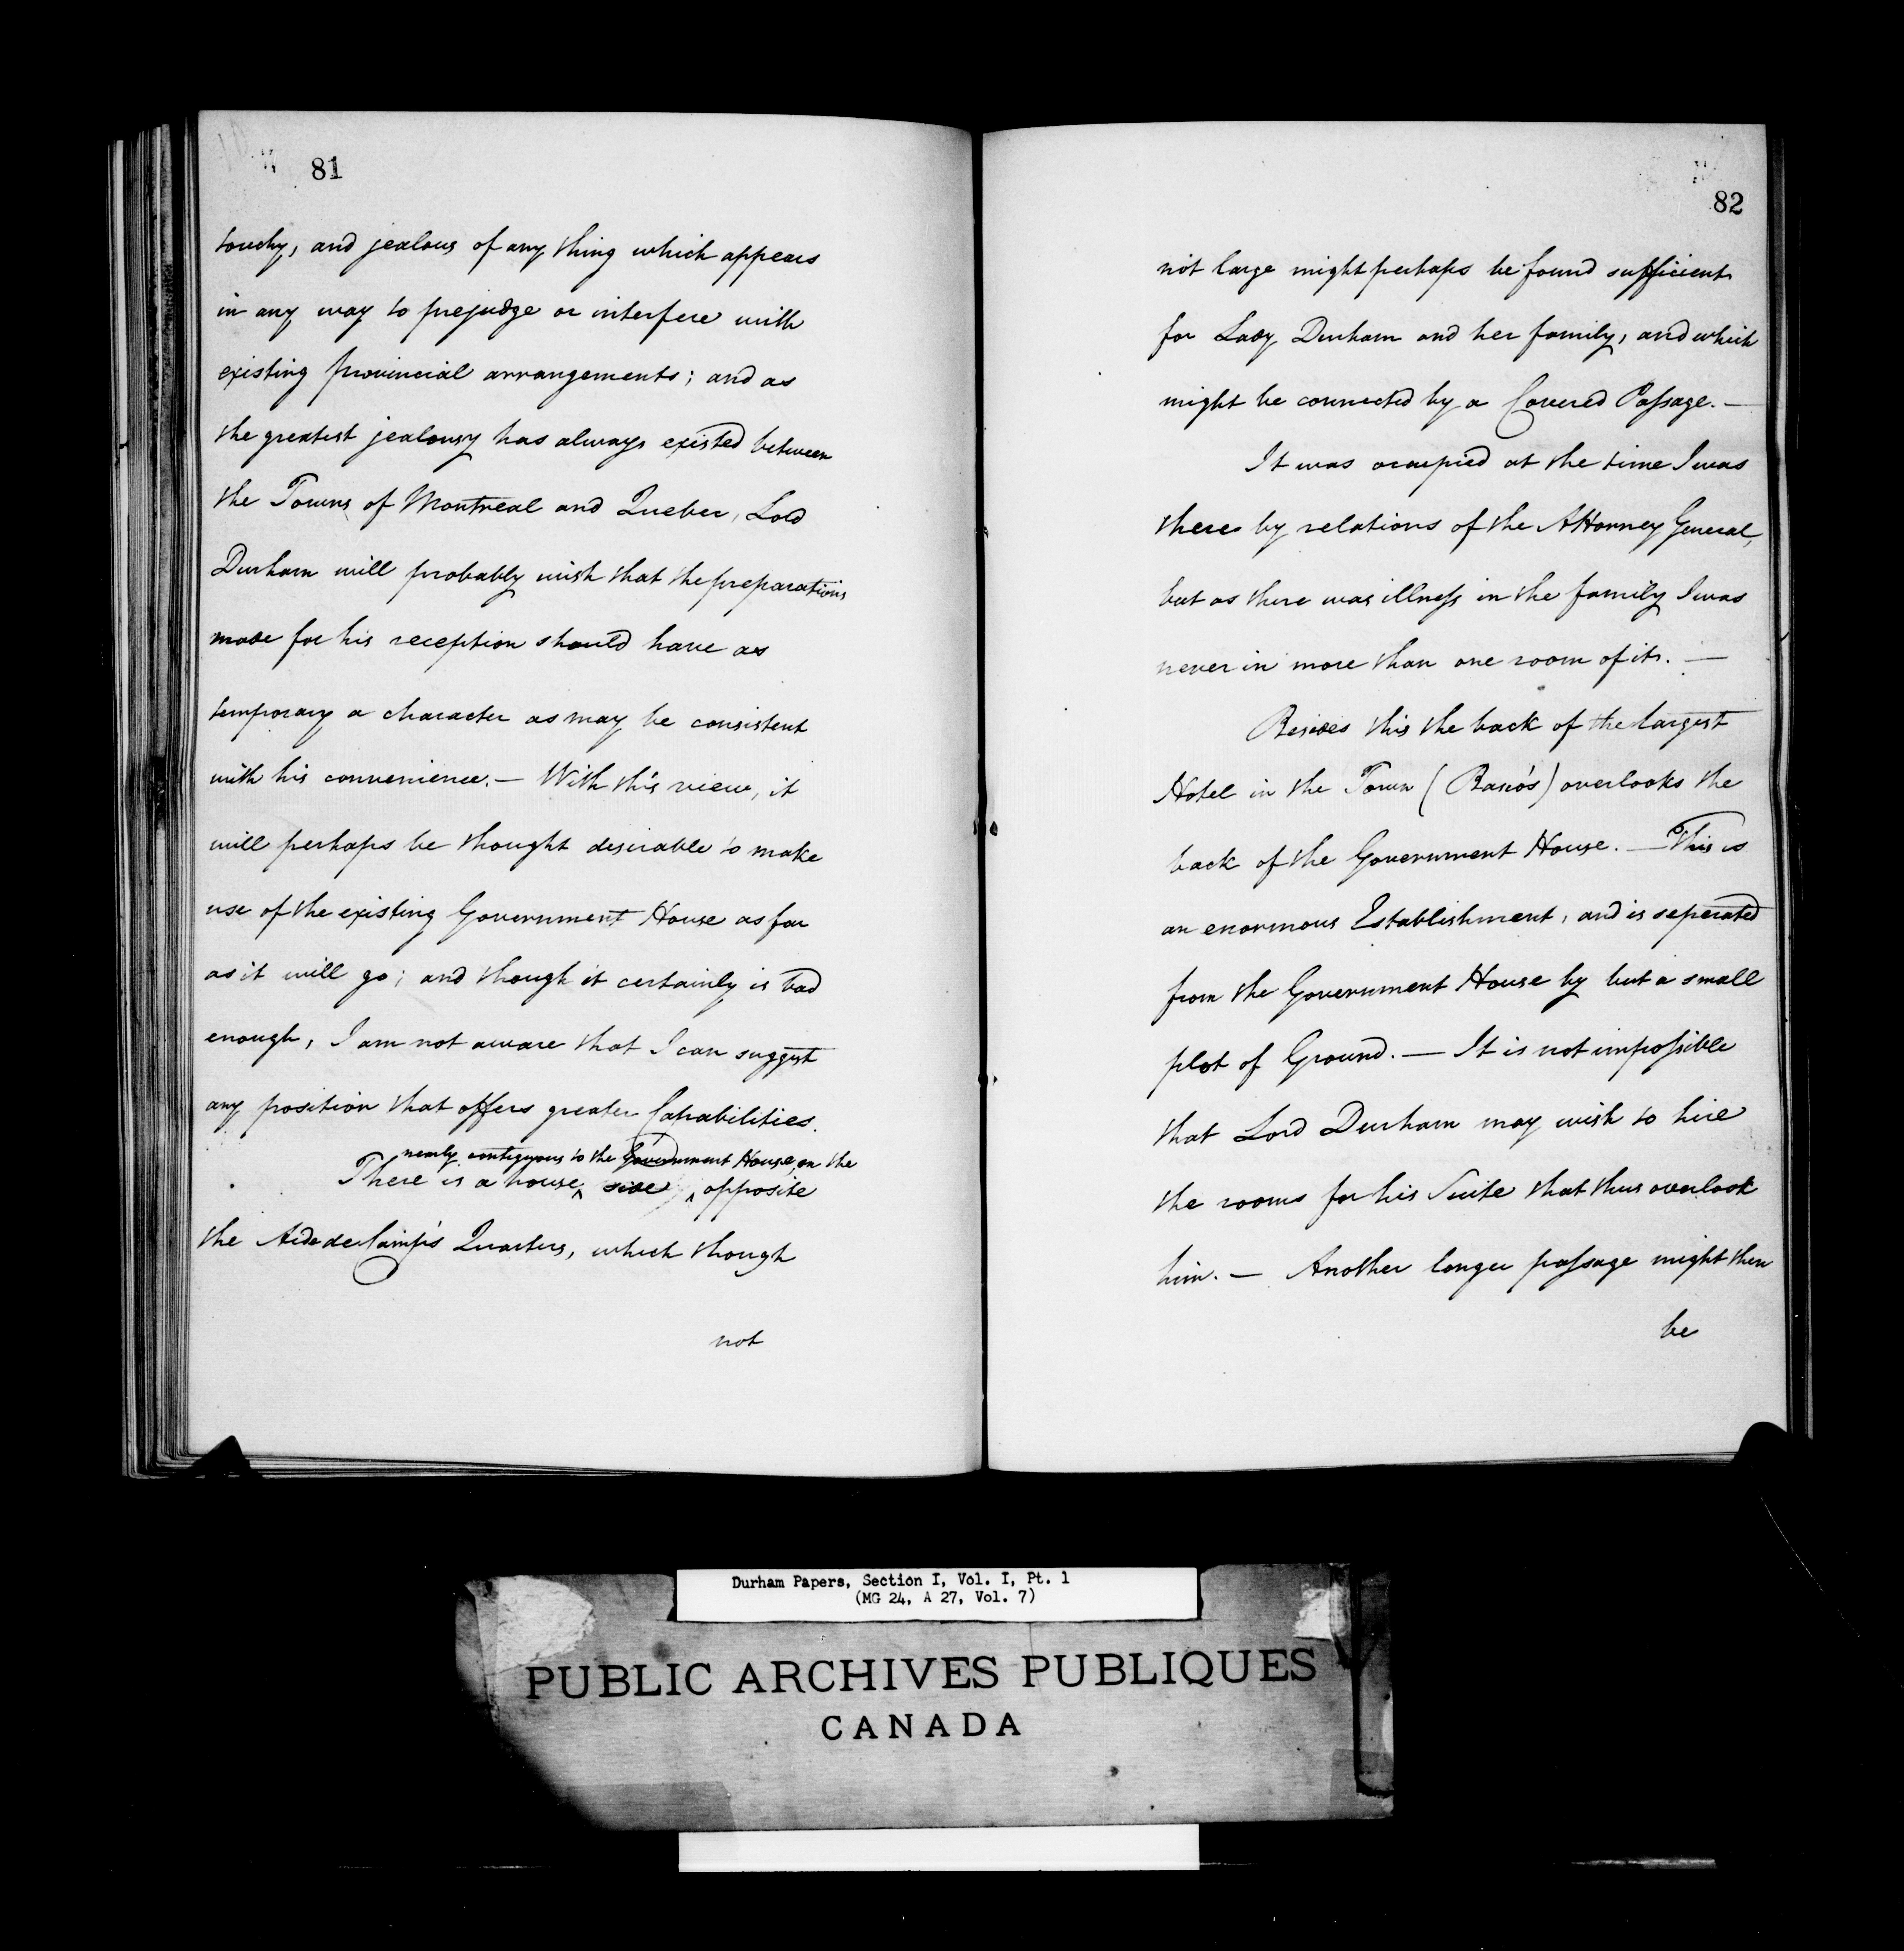 81
touchy, and jealous of any thing which appears
in any way to prejudge or interfere with
existing provincial arrangements; and as
the greatest jealousy has always existed between
the Towns of Montreal and Quebec, Lord
Durham will probably wish that the preparations
made for his reception should have as
temporary a character as may be consistent
with his convenience. — With this view, it
will perhaps be thought desirable to make
use of the existing Government House as far
as it will go; and though it certainly is bad
enough, I am not aware that I can suggest
any position that offers greater Capabilities.
nearly contiguous to the Government House, on the
There is a house side opposite
the Aide de Camp's Quarters, which though
not
82
not large might perhaps be found sufficient
for Lady Durham and her family, and which
might be connected by a Covered Passage. —
It was occupied at the time I was
there by relations of the Attorney General,
but as there was illness in the family I was
never in more than one room of it. —
Besides this the back of the largest
Hotel in the Town (Rasco's) overlooks the
back of the Government House. — This is
an enormous Establishment, and is seperated
from the Government House by but a small
plot of Ground. — It is not impossible
that Lord Durham may wish to hire
the rooms for his Suite that thus overlook
him. — Another longer passage might then
be
Durham Papers, Section I, Vol. I, Pt. 1
(MG 24, A 27, Vol. 7)
PUBLIC ARCHIVES PUBLIQUES
CANADA